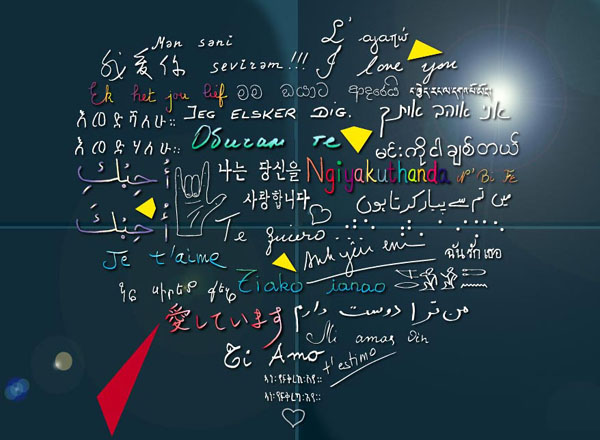 Mən səni Σ' αγαπώ
我愛你 sevirəm!!! I love you
Ek het jou lief මම ඔයාට ආදරෙයි
እወድሻለሁ። JEG ELSKER DIG. אני אוהב אותך
እወድሃለሁ። Обичам те မင်းကိုငါချစ်တယ်
أُحِبُّكِ 나는 당신을 Ngiyakuthanda
사랑합니다 میں تم سے پیار کرتا ہوں
أُحِبُّكَ Te quiero
Je t'aime Anh yêu em ฉันรักเธอ
Tiako ianao
愛しています من ترا دوست دارم
Mi amas vin
Ti Amo t'estimo